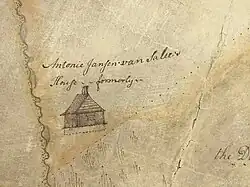 Antonie Jansen van Salee's
House formerly
the D